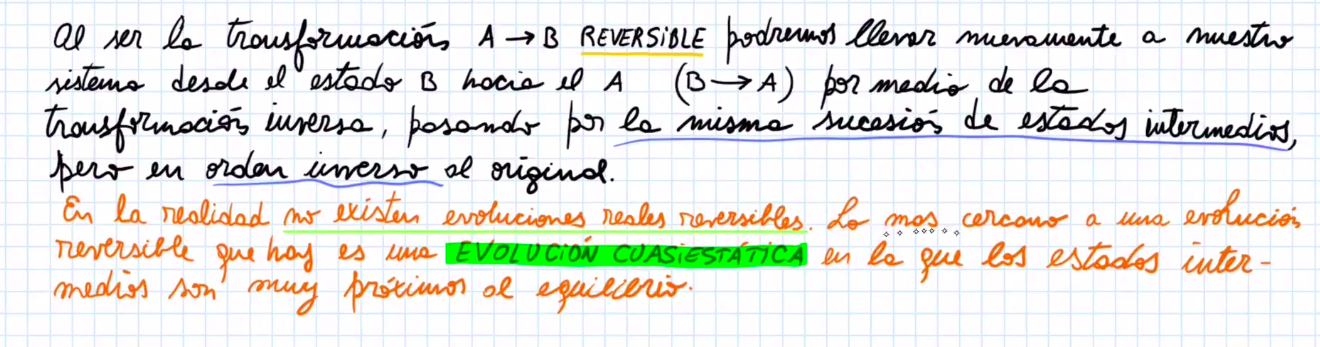 Al ser la transformación A → B REVERSIBLE podremos llevar nuevamente a nuestro
sistema desde el estado B hacia el A (B → A) por medio de la
transformación inversa, pasando por la misma sucesión de estados intermedios,
pero en orden inverso al original.
En la realidad no existen evoluciones reales reversibles. Lo mas cercano a una evolución
reversible que hay es una EVOLUCIÓN CUASIESTÁTICA en la que los estados inter-
medios son muy próximos al equilibrio.